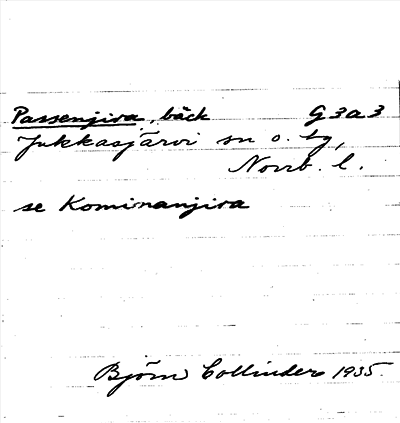 Passenjira, bäck G3a3
Jukkasjärvi sn o. tg,
Norrb. l.
se Kominanjira
Björn Collinder 1935.